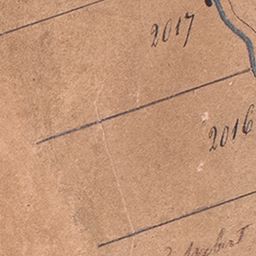 2017
2016